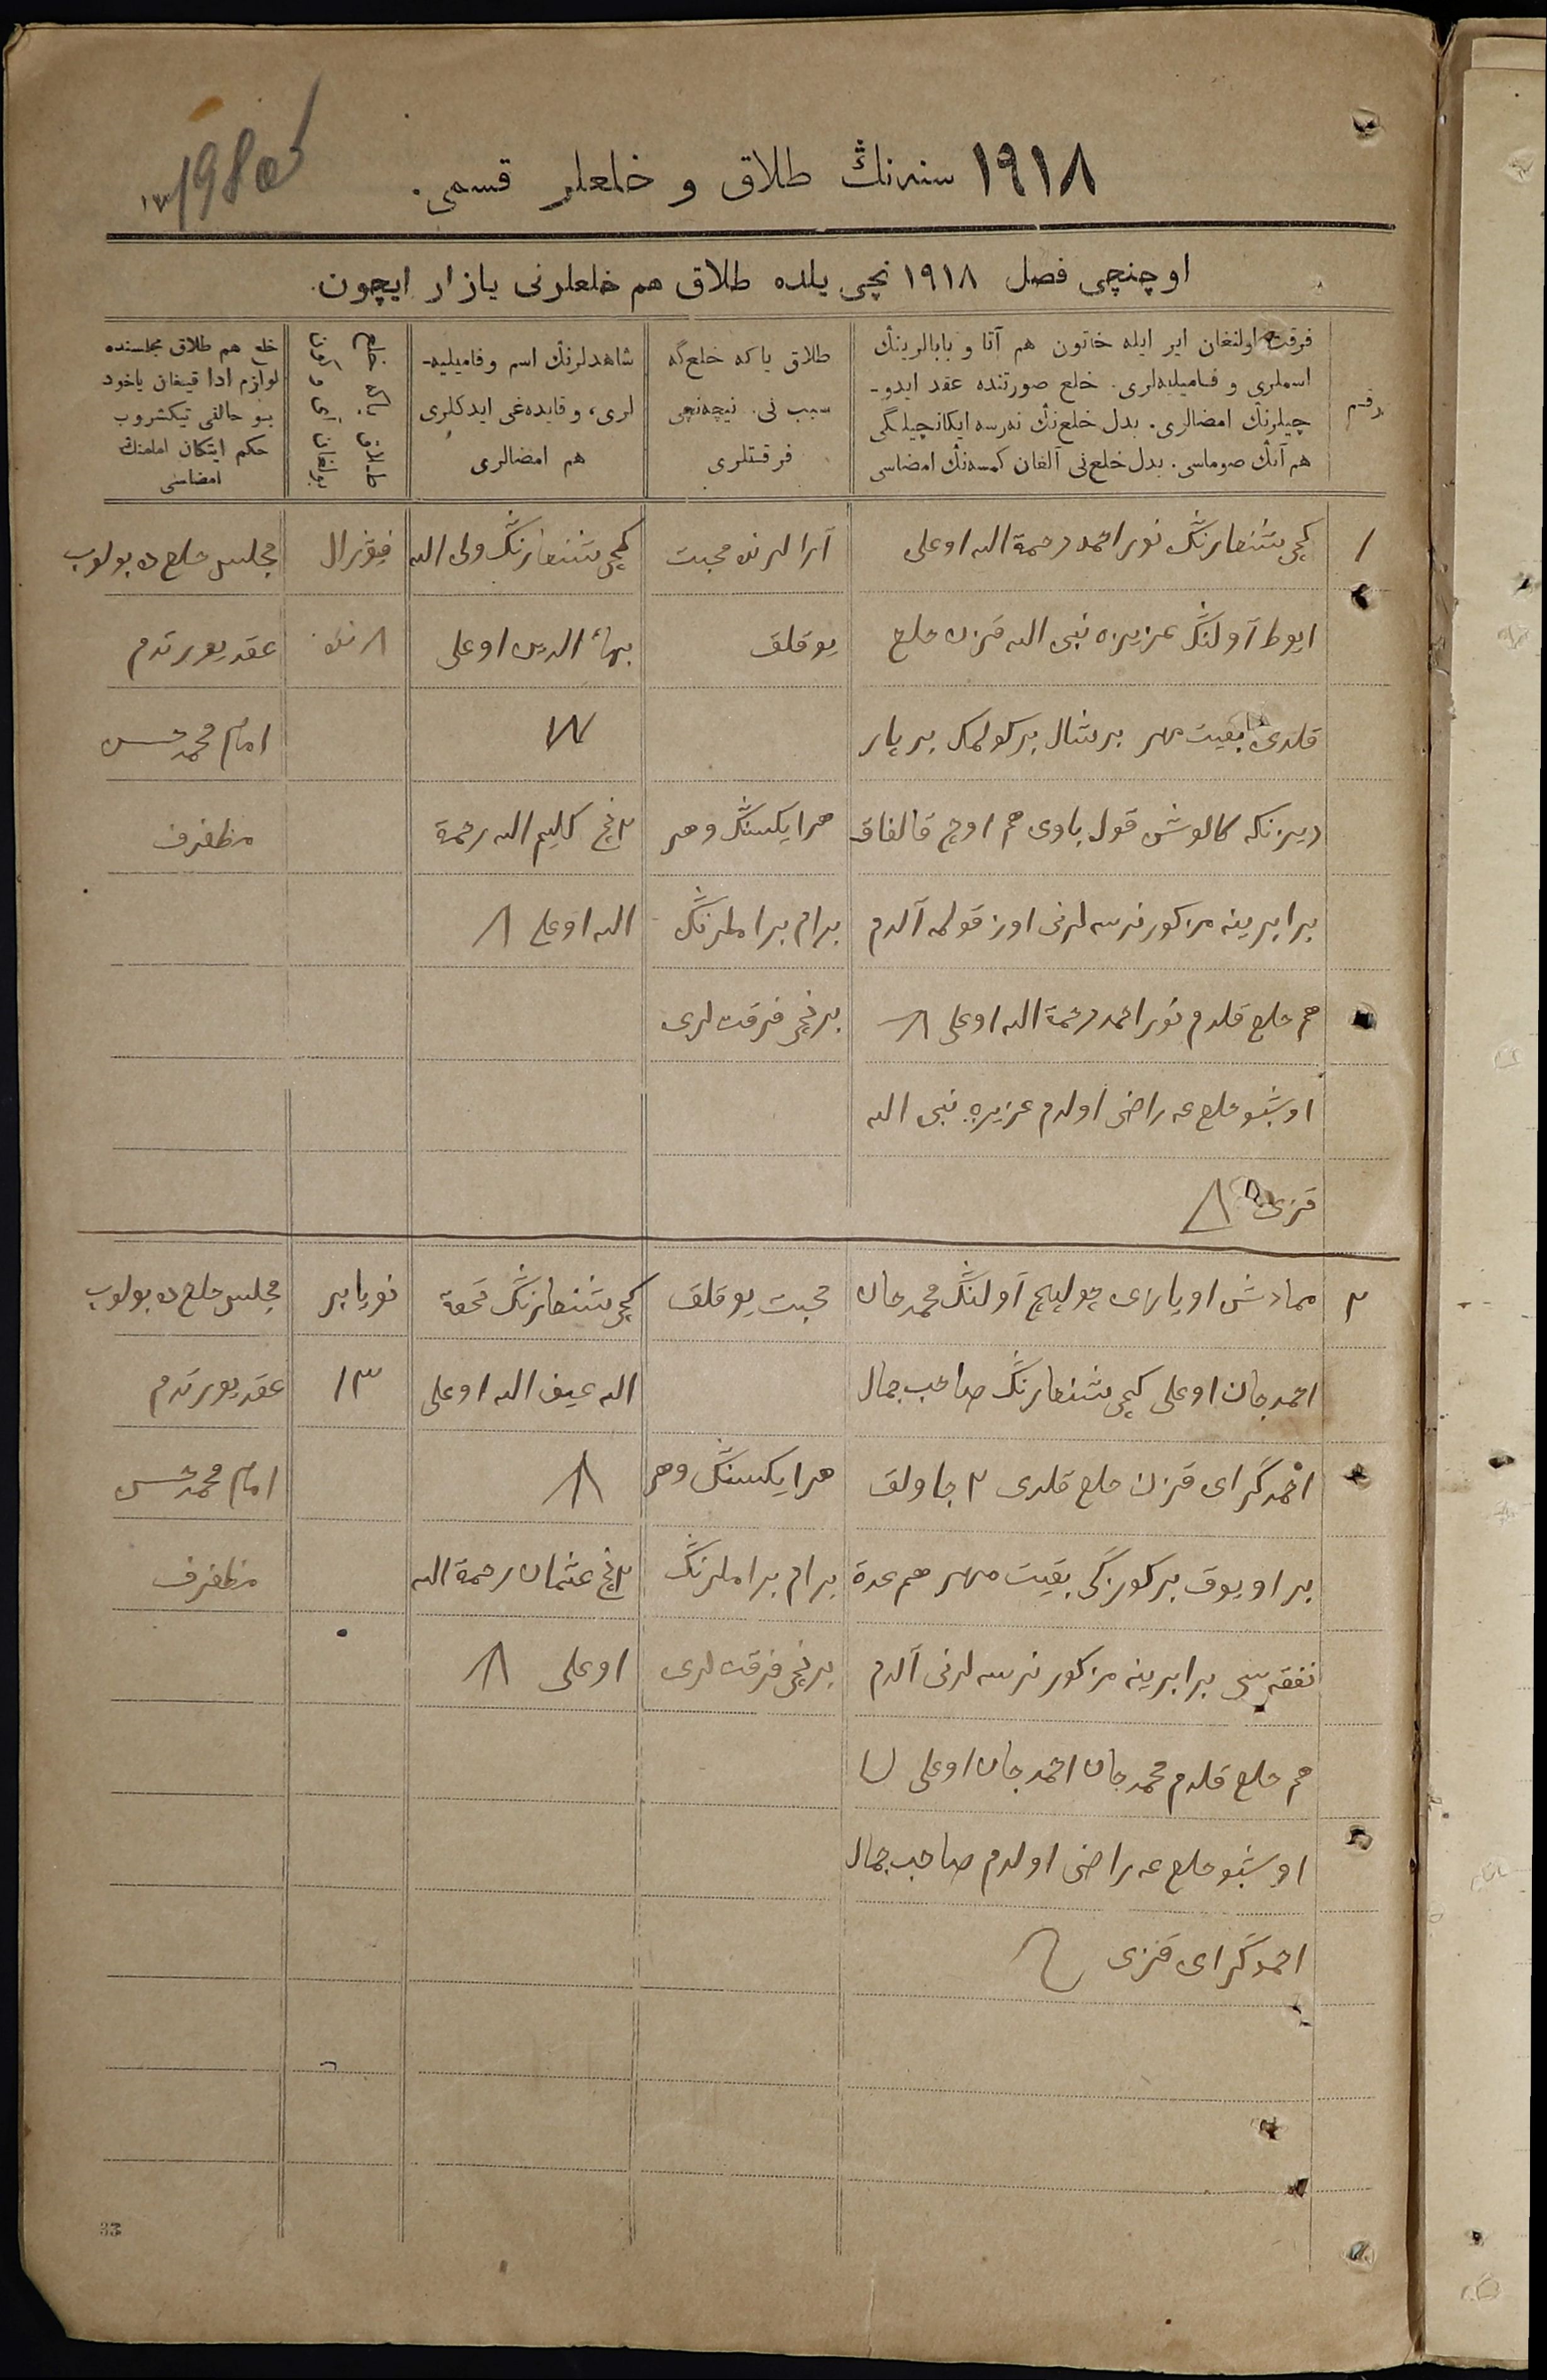 ١٩١٨ سنەنڭ طلاق و خلعلر قسمی.
198об
اوچنچی فصل ١٩١٨ نچی یلده طلاق هم خلعلرنی یازار ایچون.
رقم
فرقت اولنغان ایر ایله خاتون هم آتا و بابالرینڭ
اسملری و فامیلیه‌لری. خلع صورتنده عقد ایدو-
چیلرنڭ امضالری. بدل خلع‌نڭ نه‌رسه ایکانچیلگی
هم آنڭ صوماسی. بدل خلع‌نی آلغان کمسه‌نڭ امضاسی
طلاق یا که خلع‌گه
سبب نی. نیچه‌نچی
فرقتلری
شاهدلرنڭ اسم و فامیلیه-
لری، و قایده‌غی ایدکلری
هم امضالری
طلاق یاکه خلع
بولغان آی و کون
خلع هم طلاق مجلسنده
لوازم ادا قیلغان یاخود
بو حالنی تیکشروب
حکم ایتکان امامنڭ
امضاسی
١
کچی شنغارنڭ نور احمد رحمة الله اوغلی
آرالرنده محبت
کچی شنغارنڭ ولی الله
فیوزال
مجلس خلع ده بولوب
آولنڭ عزیزه نبی الله قزن خلع
یوقلق
بهاء الدین اوغلی
٨
عقد یورتدم
قلدی بقیت مهر بر شال بر کولمک بر پار
امام محمد
کالوش قول یاوی هم اوچ قالفاق
هر ایکسنڭ و هر
٢نچی کلیم الله رحمة
مظفرف
برابرینه مذکور نرسه لرنی اوز قولمه آلدم
الله اوغلی
هم خلع قلدم نور احمد رحمة الله اوغلی
برنچی فرقت لری
اوشبو خلع غه راضی اولدم عزیزه نبی الله
قزی
٢
آولنڭ محمد جان
محبت یوقلق
کچی شنغارنڭ تحفة
نویابر
مجلس خلع ده بولوب
احمد جان اوغلی کچی شنغارنڭ صاحب جمال
الله اوغلی
١٣
عقد یورتدم
احمد گرای قزن خلع قلدی ٢ جاولق
هر ایکسنڭ و هر
امام محمد
بر اویوق بر کورگی بقیت مهر هم عدة
٢نچی عثمان رحمة الله
مظفرف
نفقه سی برابرینه مذکور نرسه لرنی آلدم
برنچی فرقت لری
اوغلی
هم خلع قلدم محمد جان احمد جان اوغلی
اوشبو خلع غه راضی اولدم صاحب جمال
احمد گرای قزی
33